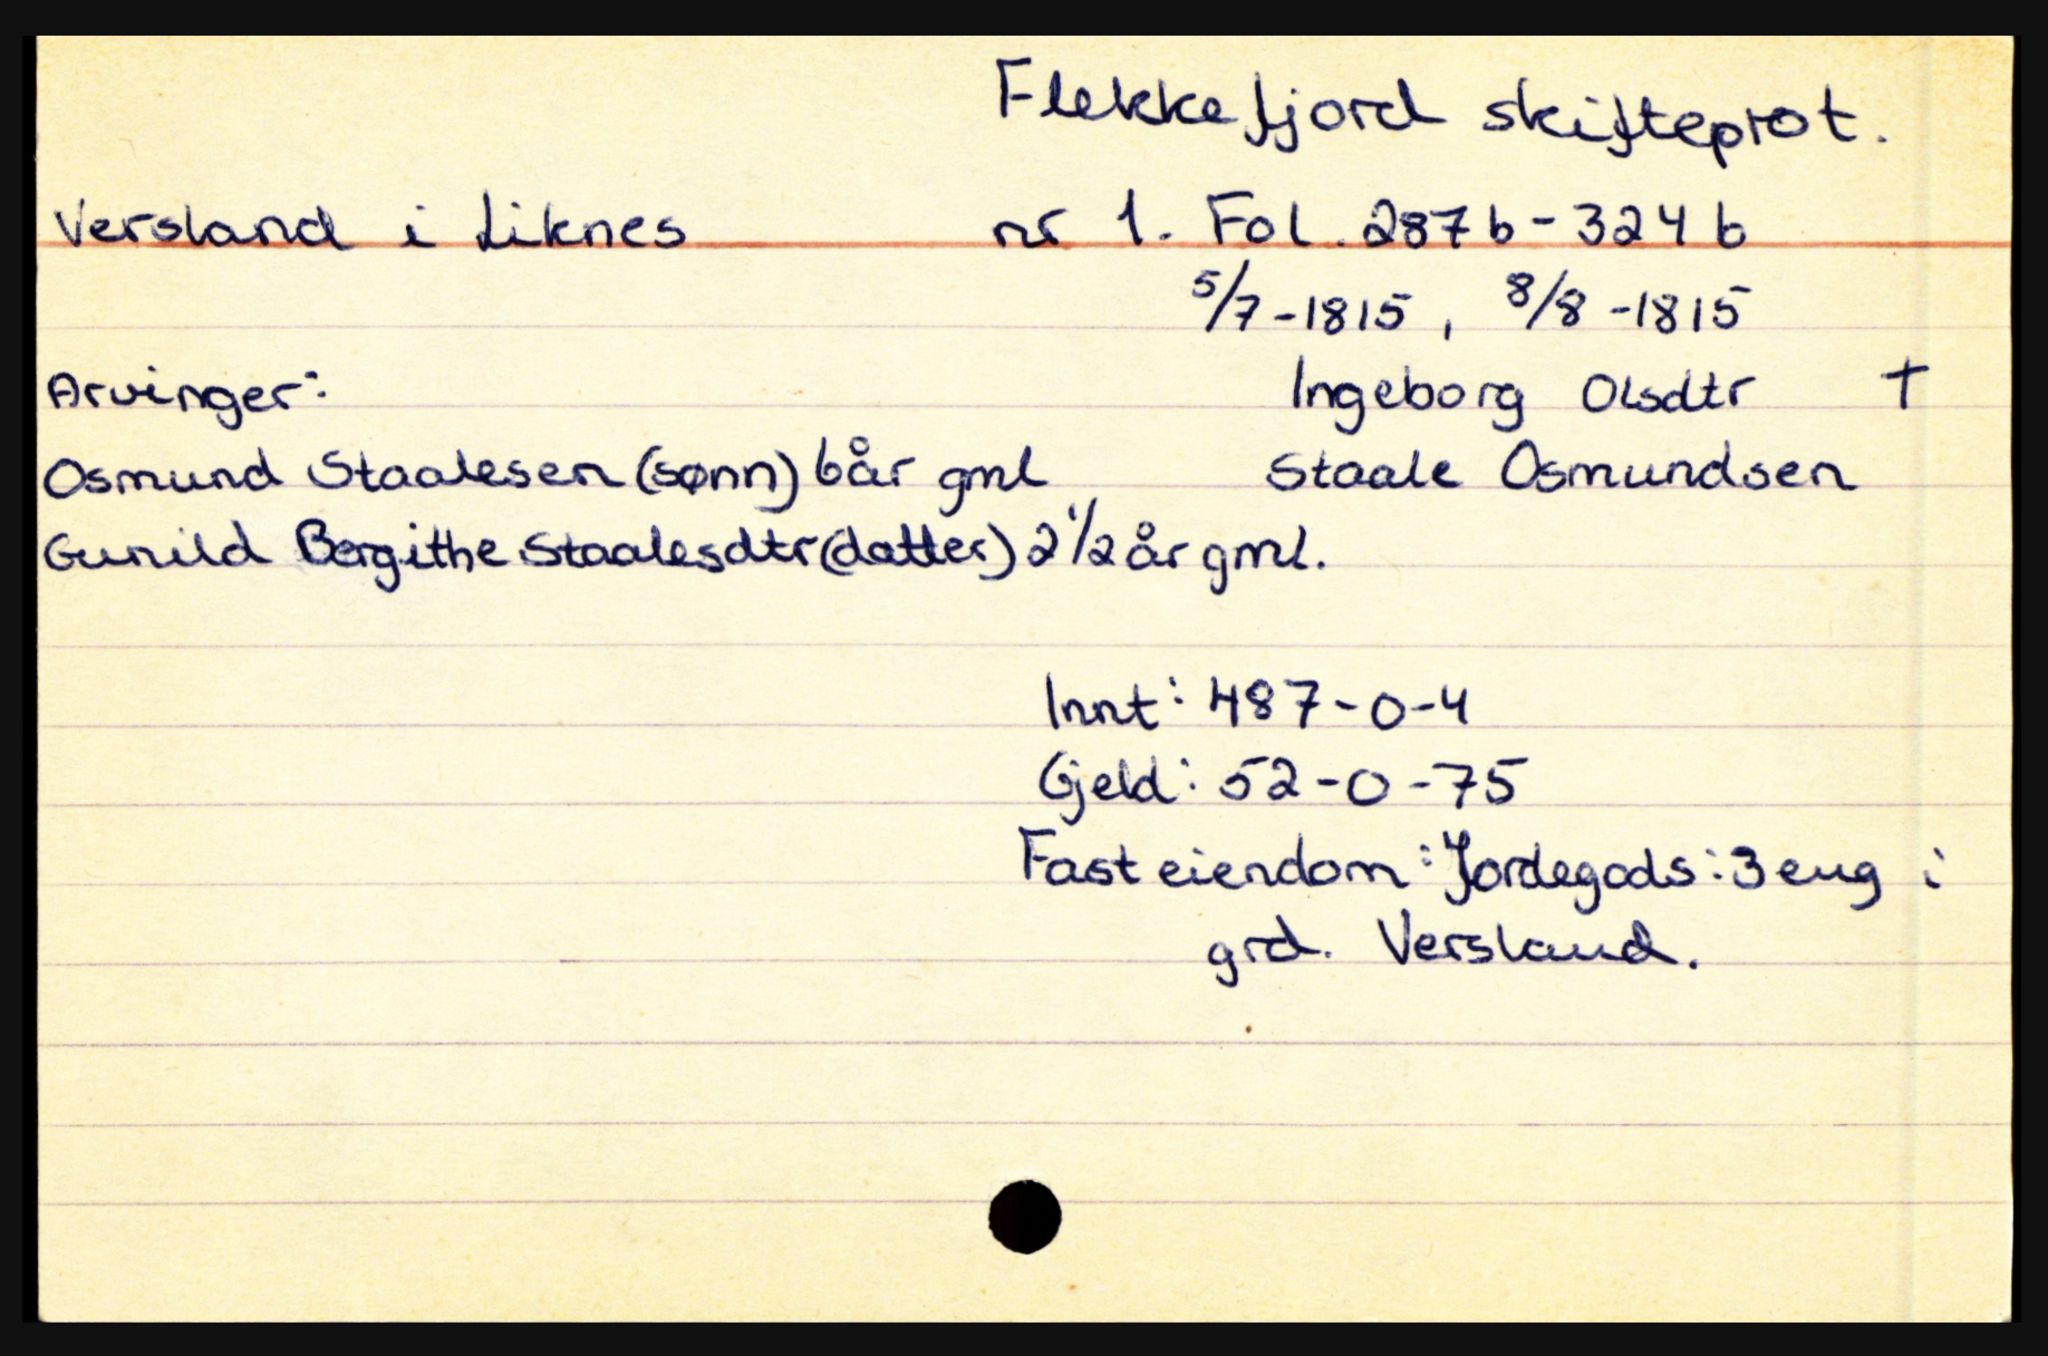 Flekkefjord skifteprot.
Versland i Liknes nr 1. Fol. 287b-324b
5/7-1815, 8/8-1815
Arvinger: Ingeborg Olsdtr †
Osmund Staalesen (sønn) 6 år gml Staale Osmundsen
Gunild Bergithe Staalesdtr (datter) 2 1/2 år gml.
Innt: 487-0-4
Gjeld: 52-0-75
Fast eiendom: Jordegods: 3 eng i
grd. Versland.